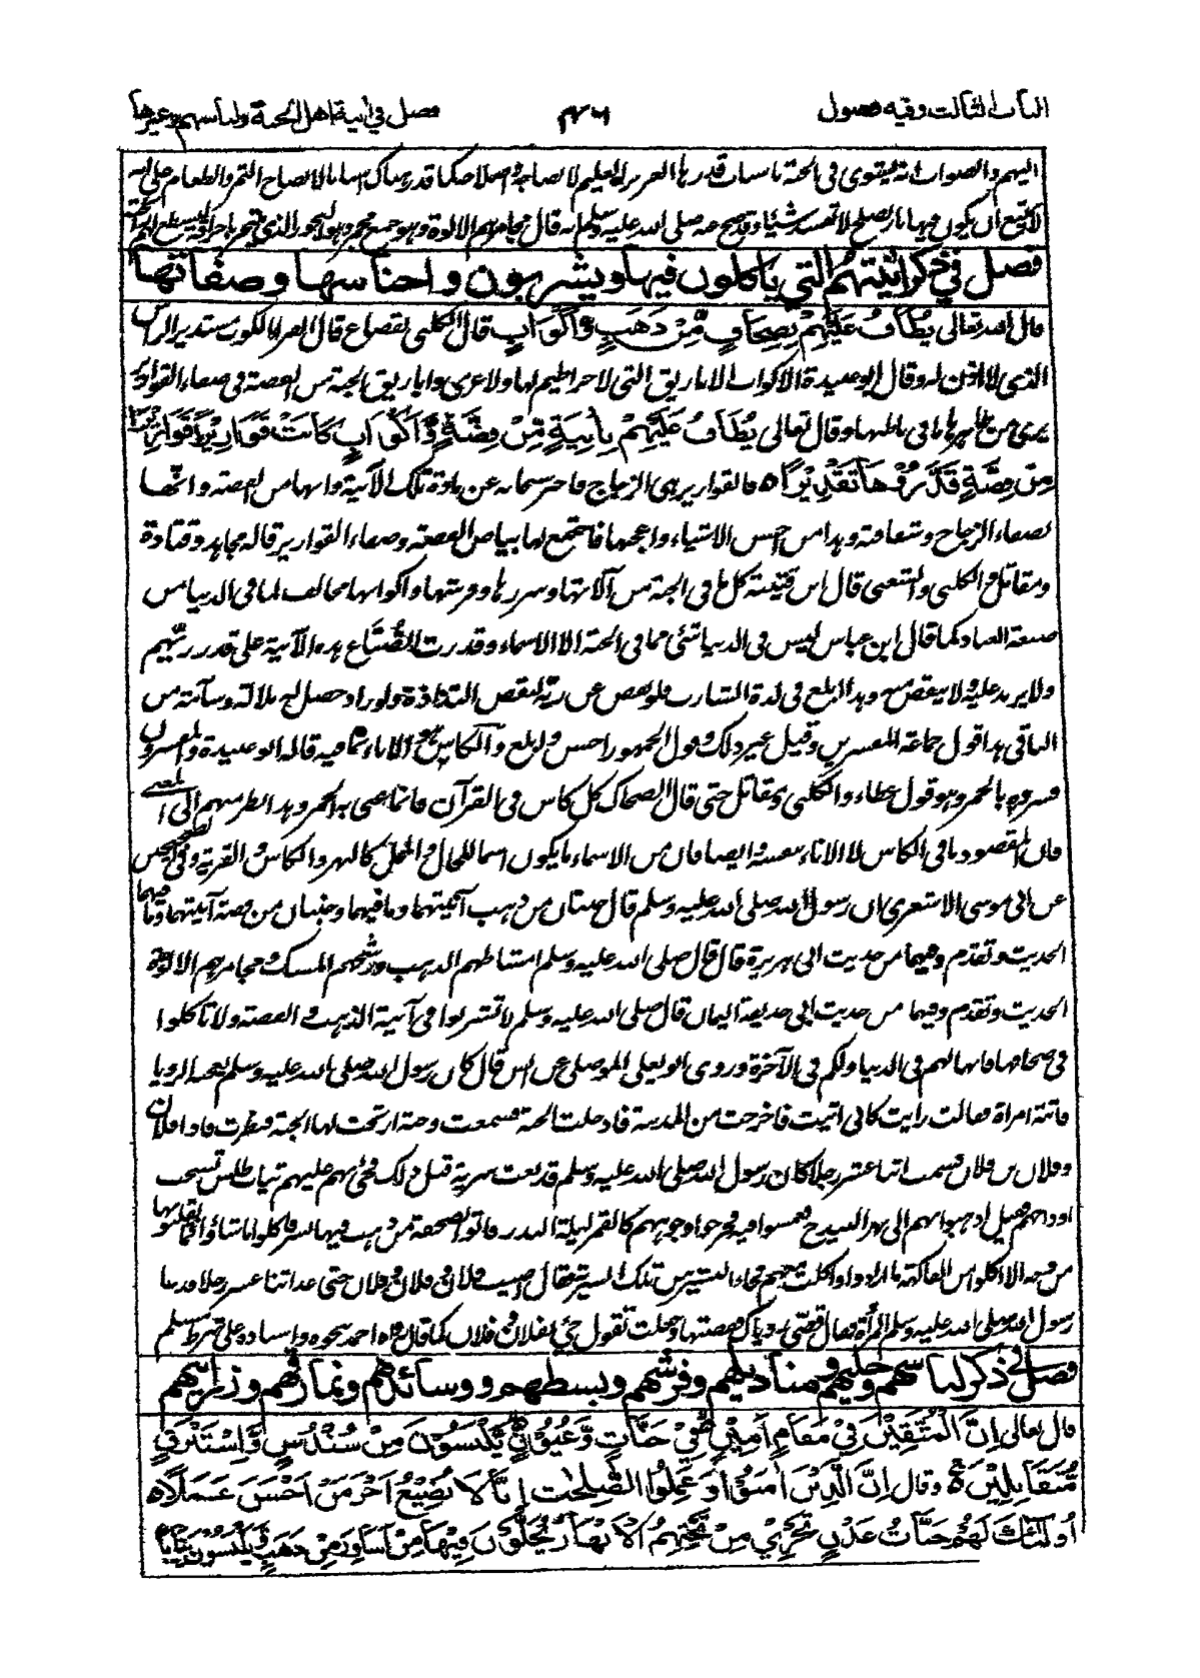 الباب الثالث وفيه فصول
فصل في آنية اهل الجنة ولباسهم وغيرها
اليهم والصواب انه يشوى في الجنة باسباب قدرها العزيز العليم لانضاجه واصلاحه كما قدر هناك اسبابا لانضاج الثمر والطعام على انه
لا يمتنع ان يكون فيها نار تصلح لا تفسد شيئا وقد صح عنه صلى الله عليه وسلم انه قال مجامرهم الالوة وهو جمع مجمر وهو البخور الذي يتبخر باحراقه
فصل في ذكر آنيتهم التي ياكلون فيها ويشربون واجناسها وصفاتها
قال الله تعالى يُطَافُ عَلَيْهِمْ بِصِحَافٍ مِّنْ ذَهَبٍ وَّأَكْوَابٍ قال الكلبي بقصاع قال الفراء الكوب مستدير الراس
الذي لا اذن له وقال ابو عبيدة الاكواب الاباريق التي لا خراطيم لها ولا عرى واباريق الجنة من الفضة في صفاء القوارير
يرى من ظاهرها ما في باطنها وقال تعالى يُطَافُ عَلَيْهِمْ بِآنِيَةٍ مِّنْ فِضَّةٍ وَّأَكْوَابٍ كَانَتْ قَوَارِيْرَا قَوَارِيْرَا
مِنْ فِضَّةٍ قَدَّرُوْهَا تَقْدِيْرًا ه فالقوارير هي الزجاج فاخبر سبحانه عن مادة تلك الآنية وانها من الفضة وانها
بصفاء الزجاج وشفافته وهذا من احسن الاشياء واعجبها فاجتمع لها بياض الفضة وصفاء القوارير قاله مجاهد وقتادة
ومقاتل والكلبي والشعبي قال ابن قتيبة كل ما في الجنة من آلاتها وسررها وفرشها واكوابها مخالف لما في الدنيا من
صنعة العباد كما قال ابن عباس ليس في الدنيا شئ مما في الجنة الا الاسماء وقدرت الصُّنَّاع هذه الآنية على قدر ريّهم
ولا يزيد عليه ولا ينقص منه وهذا ابلغ في لذة الشارب فلو نقص عن ريّه لنقص التذاذه ولو زاد حصل له ملالة وسآمة من
الباقي هذا قول جماعة المفسرين وقيل غير ذلك وقول الجمهور احسن وابلغ والكاس هو الاناء بما فيه قاله ابو عبيدة والمفسرون
فسروه بالخمر وهو قول عطاء والكلبي ومقاتل حتى قال الضحاك كل كاس في القرآن فانما عنى به الخمر وهذا نظر منهم الى المعنى
فان المقصود ما في الكاس لا الاناء نفسه وايضا فان من الاسماء ما يكون اسما للحال والمحل كالنهر والكاس والقرية وفي الصحيحين
عن ابي موسى الاشعري ان رسول الله صلى الله عليه وسلم قال جنتان من ذهب آنيتهما وما فيهما وجنتان من فضة آنيتهما وما فيهما
الحديث وتقدم وفيهما من حديث ابي هريرة قال قال صلى الله عليه وسلم امشاطهم الذهب ورشحهم المسك ومجامرهم الالوة
الحديث وتقدم وفيهما من حديث ابي حذيفة اليمان قال صلى الله عليه وسلم لا تشربوا في آنية الذهب والفضة ولا تاكلوا
في صحافها فانها لهم في الدنيا ولكم في الآخرة وروى ابو يعلى الموصلي عن انس قال كان رسول الله صلى الله عليه وسلم تعجبه الرويا
فاتته امراة فقالت رايت كاني اتيت فاخرجت من المدينة فادخلت الجنة فسمعت وجبة ارتجت لها الجنة فنظرت فاذا فلان
وفلان بن فلان فسمت اثنا عشر رجلا كان رسول الله صلى الله عليه وسلم قد بعث سرية قبل ذلك فجئ بهم عليهم ثياب طلس تشخب
اوداجهم فقيل اذهبوا بهم الى نهر البيدخ فغمسوا فيه فخرجوا وجوههم كالقمر ليلة البدر فاتوا بصحفة من ذهب فيها بسر فاكلوا ما شاؤا فما يقلبونها
من وجه الا اكلوا من الفاكهة ما ارادوا واكلت معهم فجاء البشير من تلك السرية فقال اصيب فلان وفلان وفلان حتى عد اثنا عشر رجلا فدعا
رسول الله صلى الله عليه وسلم المرأة فقال قصّي رؤياك فقصتها وجعلت تقول جئ بفلان وفلان كما قال رواه احمد بنحوه واسناده على شرط مسلم
فصل في ذكر لباسهم وحليهم ومناديلهم وفرشهم وبسطهم ووسائدهم ونمارقهم وزرابيهم
قال تعالى اِنَّ الْمُتَّقِيْنَ فِيْ مَقَامٍ أَمِيْنٍ فِيْ جَنَّاتٍ وَّعُيُوْنٍ يَّلْبَسُوْنَ مِنْ سُنْدُسٍ وَّاِسْتَبْرَقٍ
مُّتَقَابِلِيْنَ ه وقال اِنَّ الَّذِيْنَ اٰمَنُوْا وَعَمِلُوا الصّٰلِحٰتِ اِنَّا لَا نُضِيْعُ اَجْرَ مَنْ اَحْسَنَ عَمَلًا ه
أُولٰئِكَ لَهُمْ جَنَّاتُ عَدْنٍ تَجْرِيْ مِنْ تَحْتِهِمُ الْأَنْهَارُ يُحَلَّوْنَ فِيْهَا مِنْ أَسَاوِرَ مِنْ ذَهَبٍ وَّيَلْبَسُوْنَ ثِيَابًا